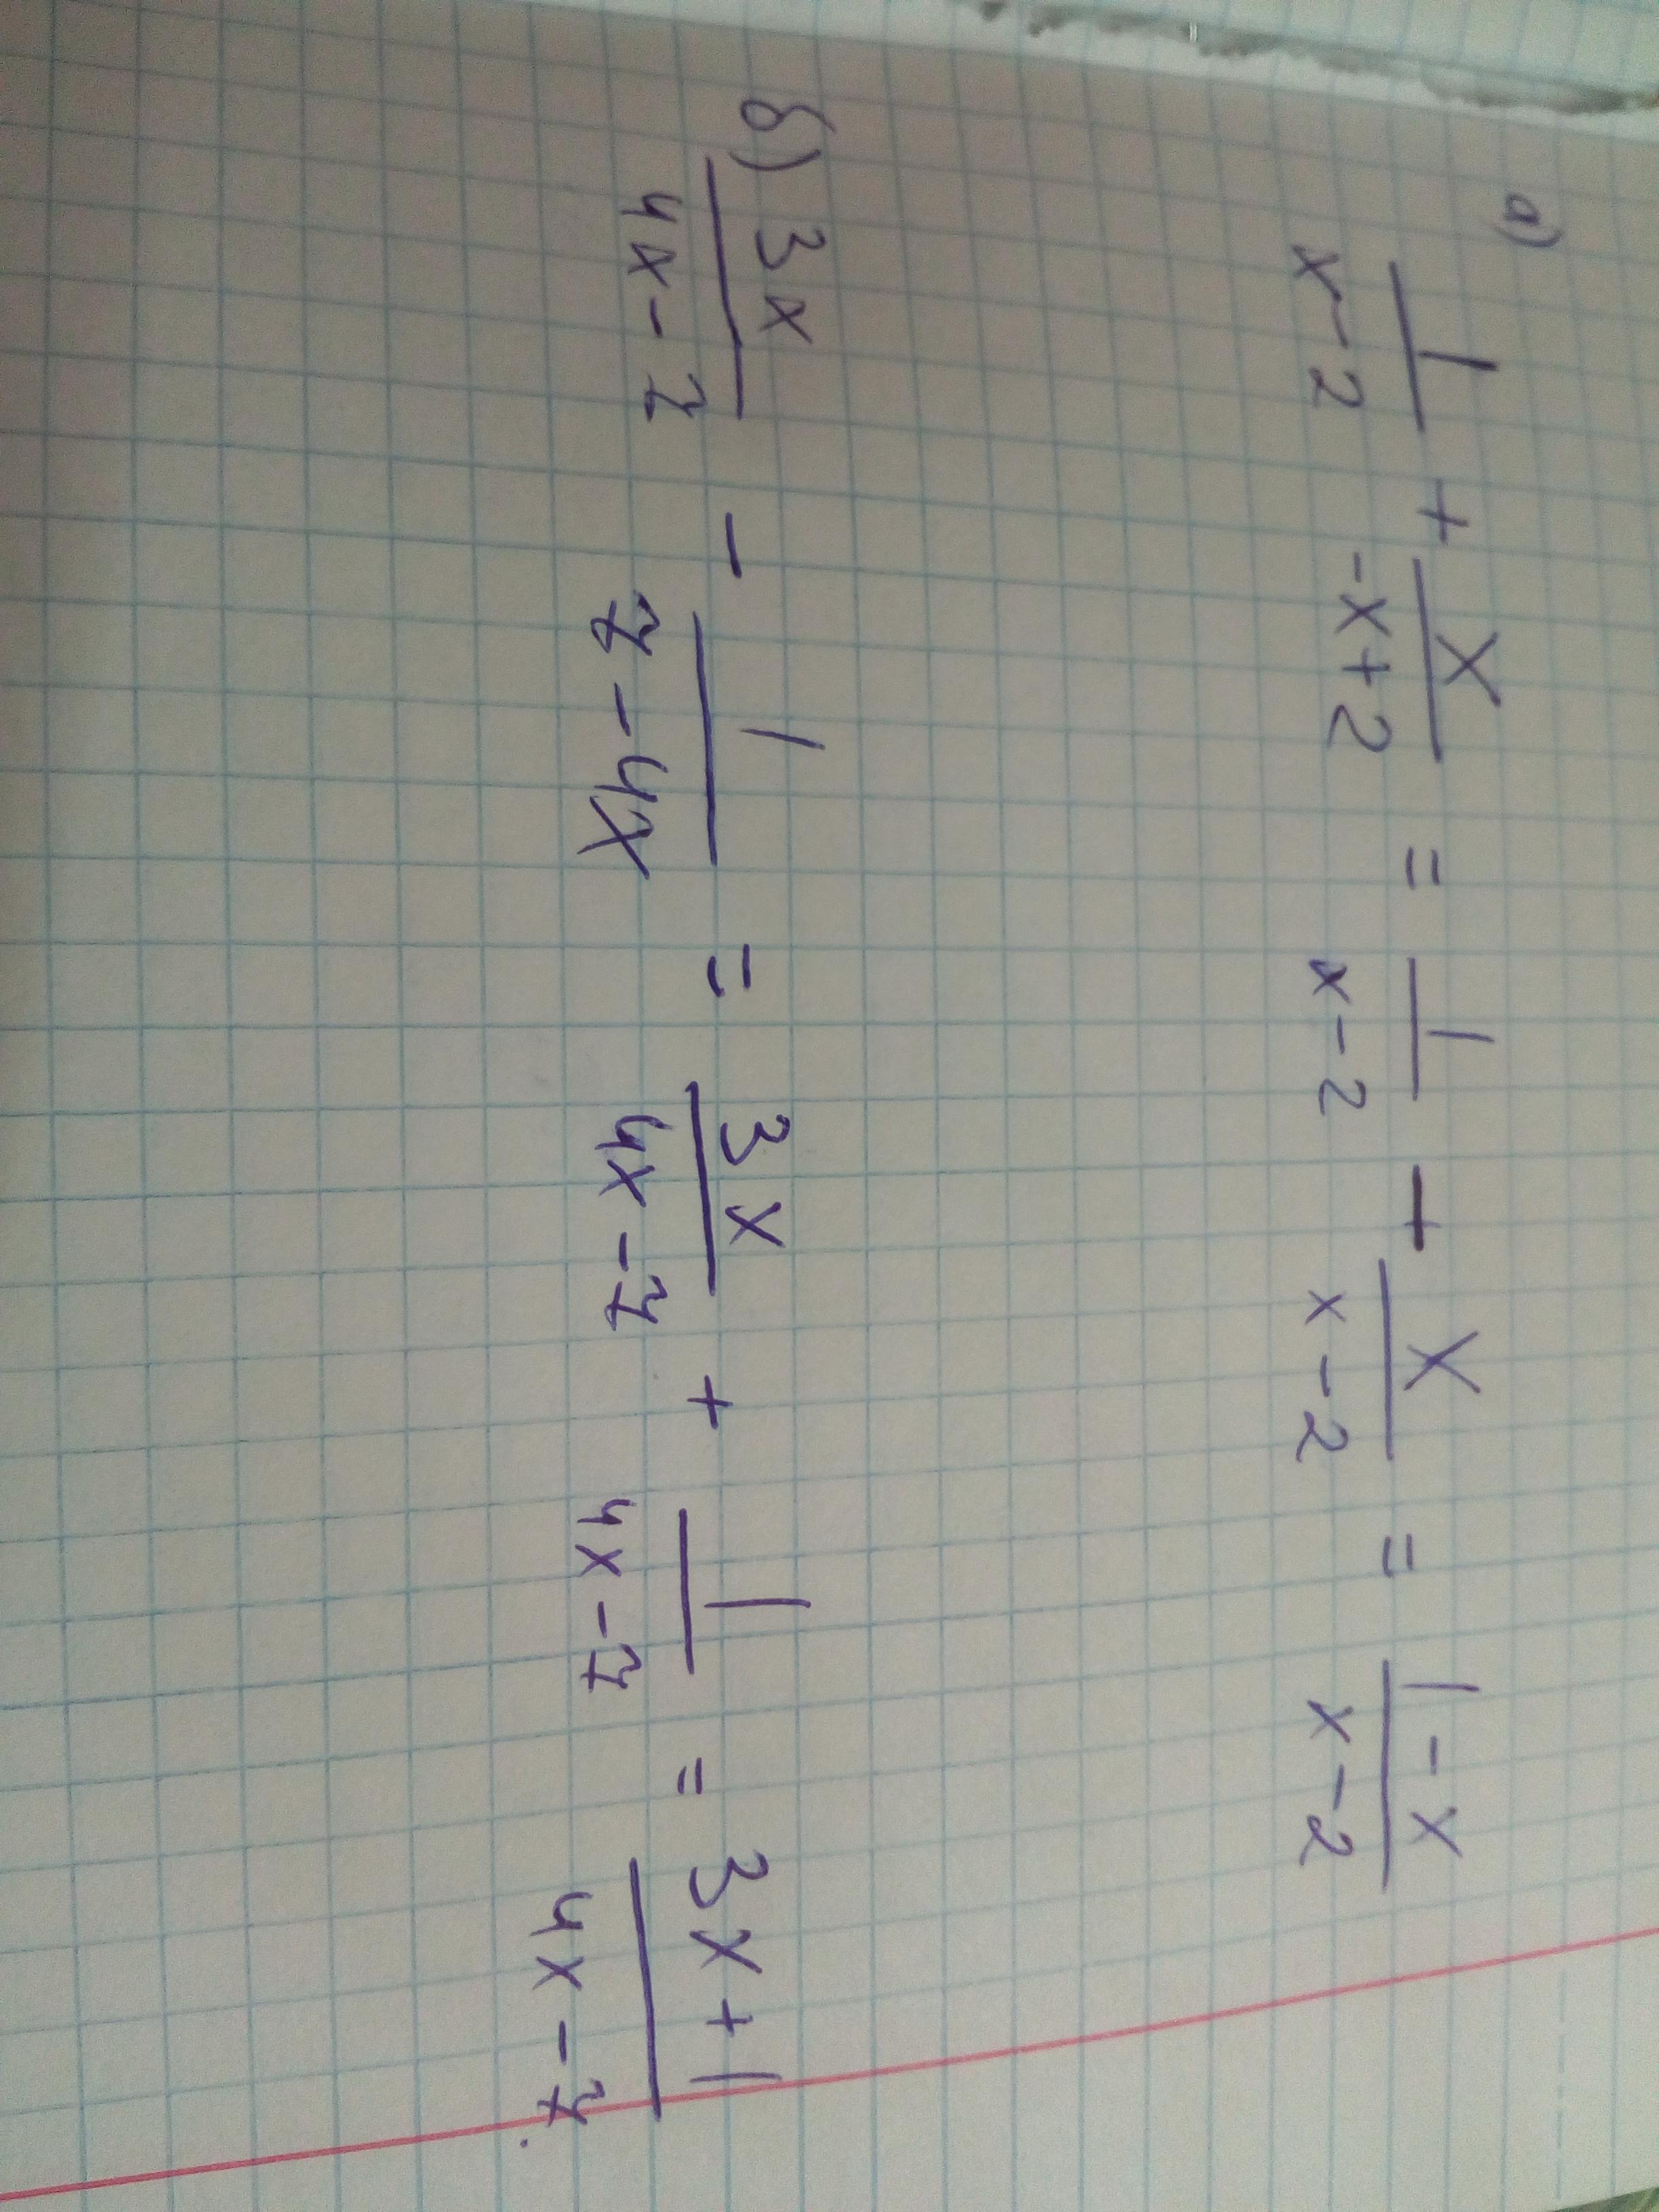 а) 1/(x-2) + x/(-x+2) = 1/(x-2) - x/(x-2) = (1-x)/(x-2)
б) 3x/(4x-7) - 1/(7-4x) = 3x/(4x-7) + 1/(4x-7) = (3x+1)/(4x-7).